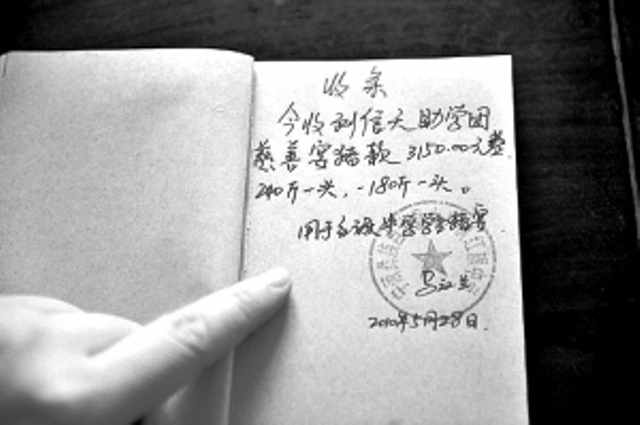 收条
今收到信天助学团
慈善宰猪款3150.00元整.
240斤一头,-180斤一头。
用于 中学学生
2010年5月28日.